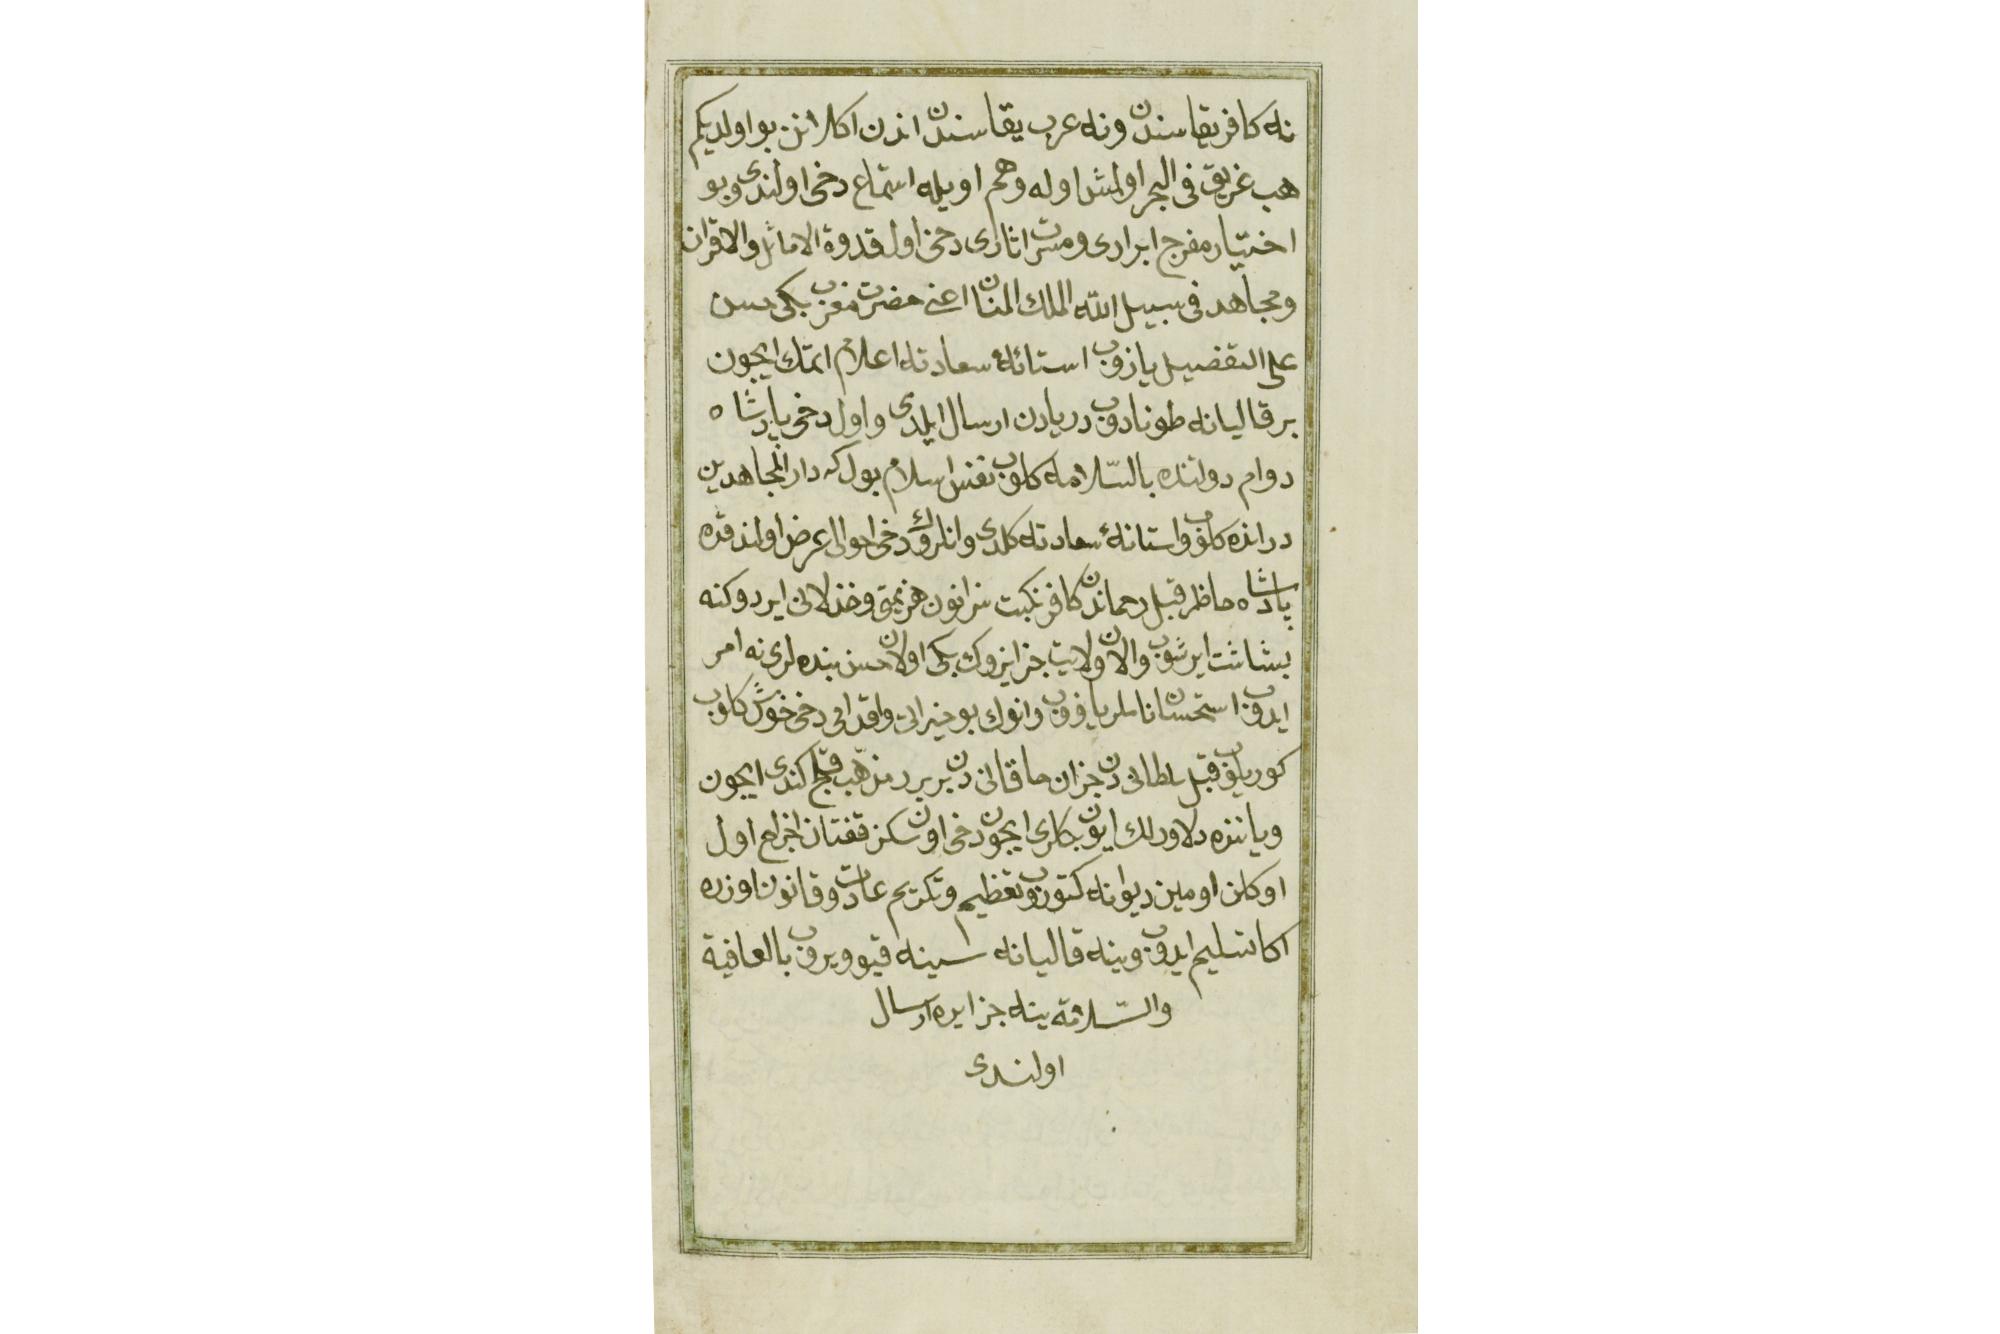 نه كافر يقاسندن ونه عرب يقاسندن اندن اكلانن بو اولديكم
هب غريق فى البحر اولمش اوله وهم اويله استماع دخى اولندى وبو
اختيار مفرج ابرارى ومسرت اثارى دخى اول قدوة الاماثل والاقران
ومجاهد فى سبيل الله الملك المنان اعنى حضرت مغرب بكى حسن
على التفضيل يازوب استانهٔ سعادته اعلام اتمك ايچون
بر قاليانه طونادوب دريادن ارسال ايلدى واول دخى پادشاه
دوام دولتنده بالسّلامه كلوب نفس اسلامبول كه دار المجاهدين
در انده كلوب واستانهٔ سعادته كلدى وانلروك دخى احوالى عرض اولندقده
پادشاه حاظر قبل رحماندن كافر نكبت سزانون هزيمتى وخذلانى ايردوكنه
بشاشت ايرشوب والان ولايت جزايروك بكى اولان حسن بنده لرى نه امر
ايدوب استحسانا ملر يازوب وانوك بو خيرالى واقدامى دخى خوش كلوب
كوريلوب قبل سلطانى دن جزان خاقانى دن برير مذهّب قلج كندى ايچون
وياننده دلاورلك ايون بكلرى ايچون دخى اون سكز قفتان اخراج اول
اوكلن اومين ديوانه كتوروب تعظيم وتكريم عادت وقانون اوزره
اكا تسليم ايدوب وينه قاليانه سينه قيو ويروب بالعافية
والسّلامة ينه جزايره ارسال
اولندى